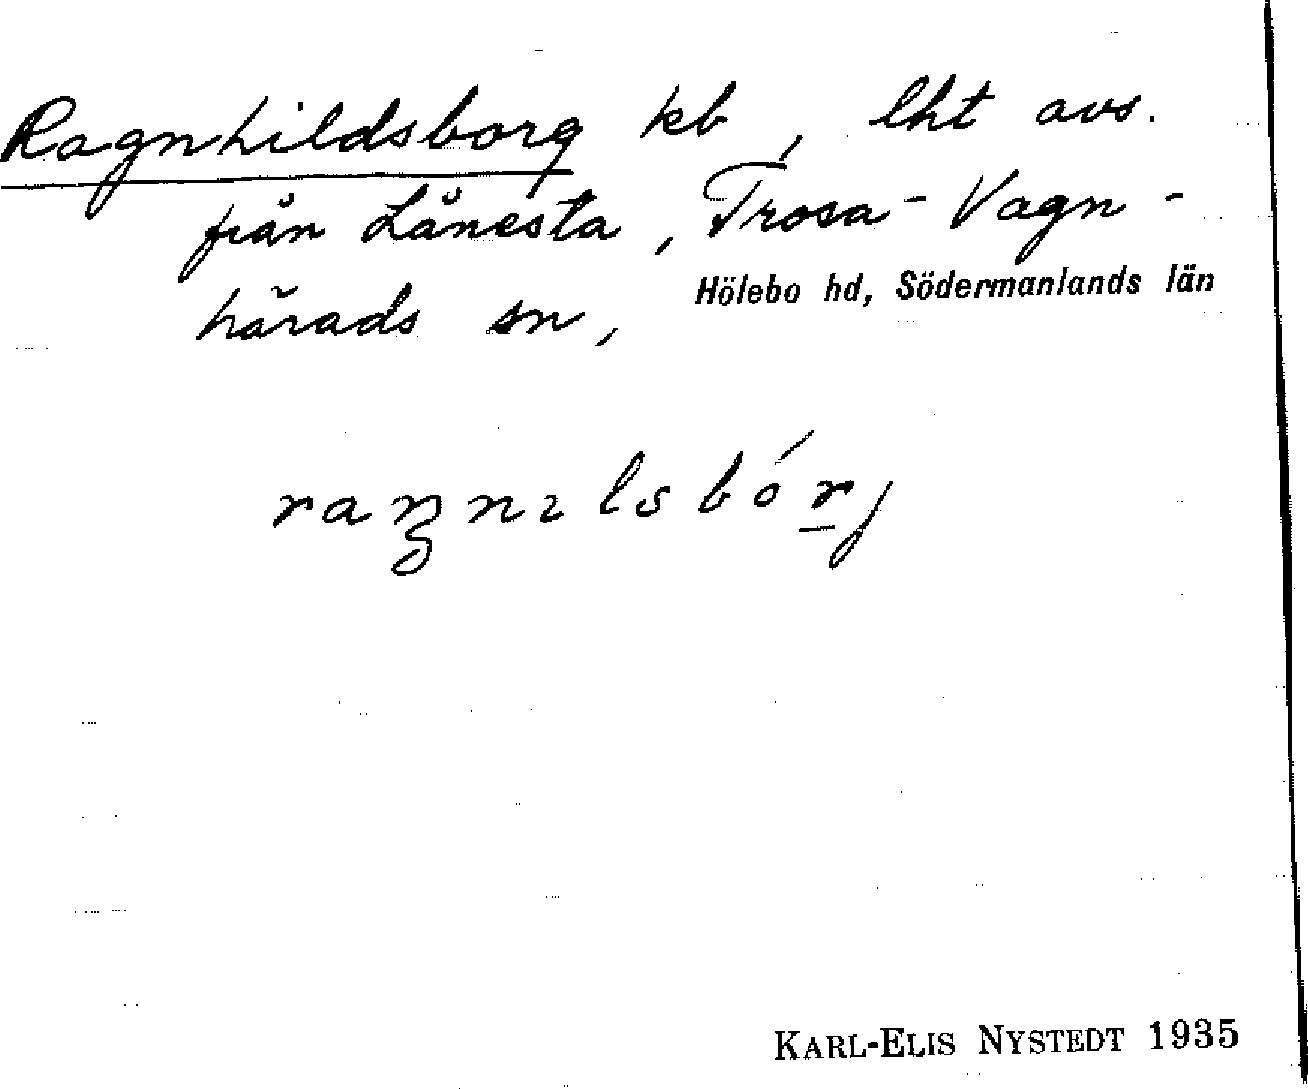 Ragnhildsborg kb, lht avs.
från Lånesta, Trosa-Vagn-
härads sn, Hölebo hd, Södermanlands län
raŋnɪlsbórj
KARL-ELIS NYSTEDT 1935